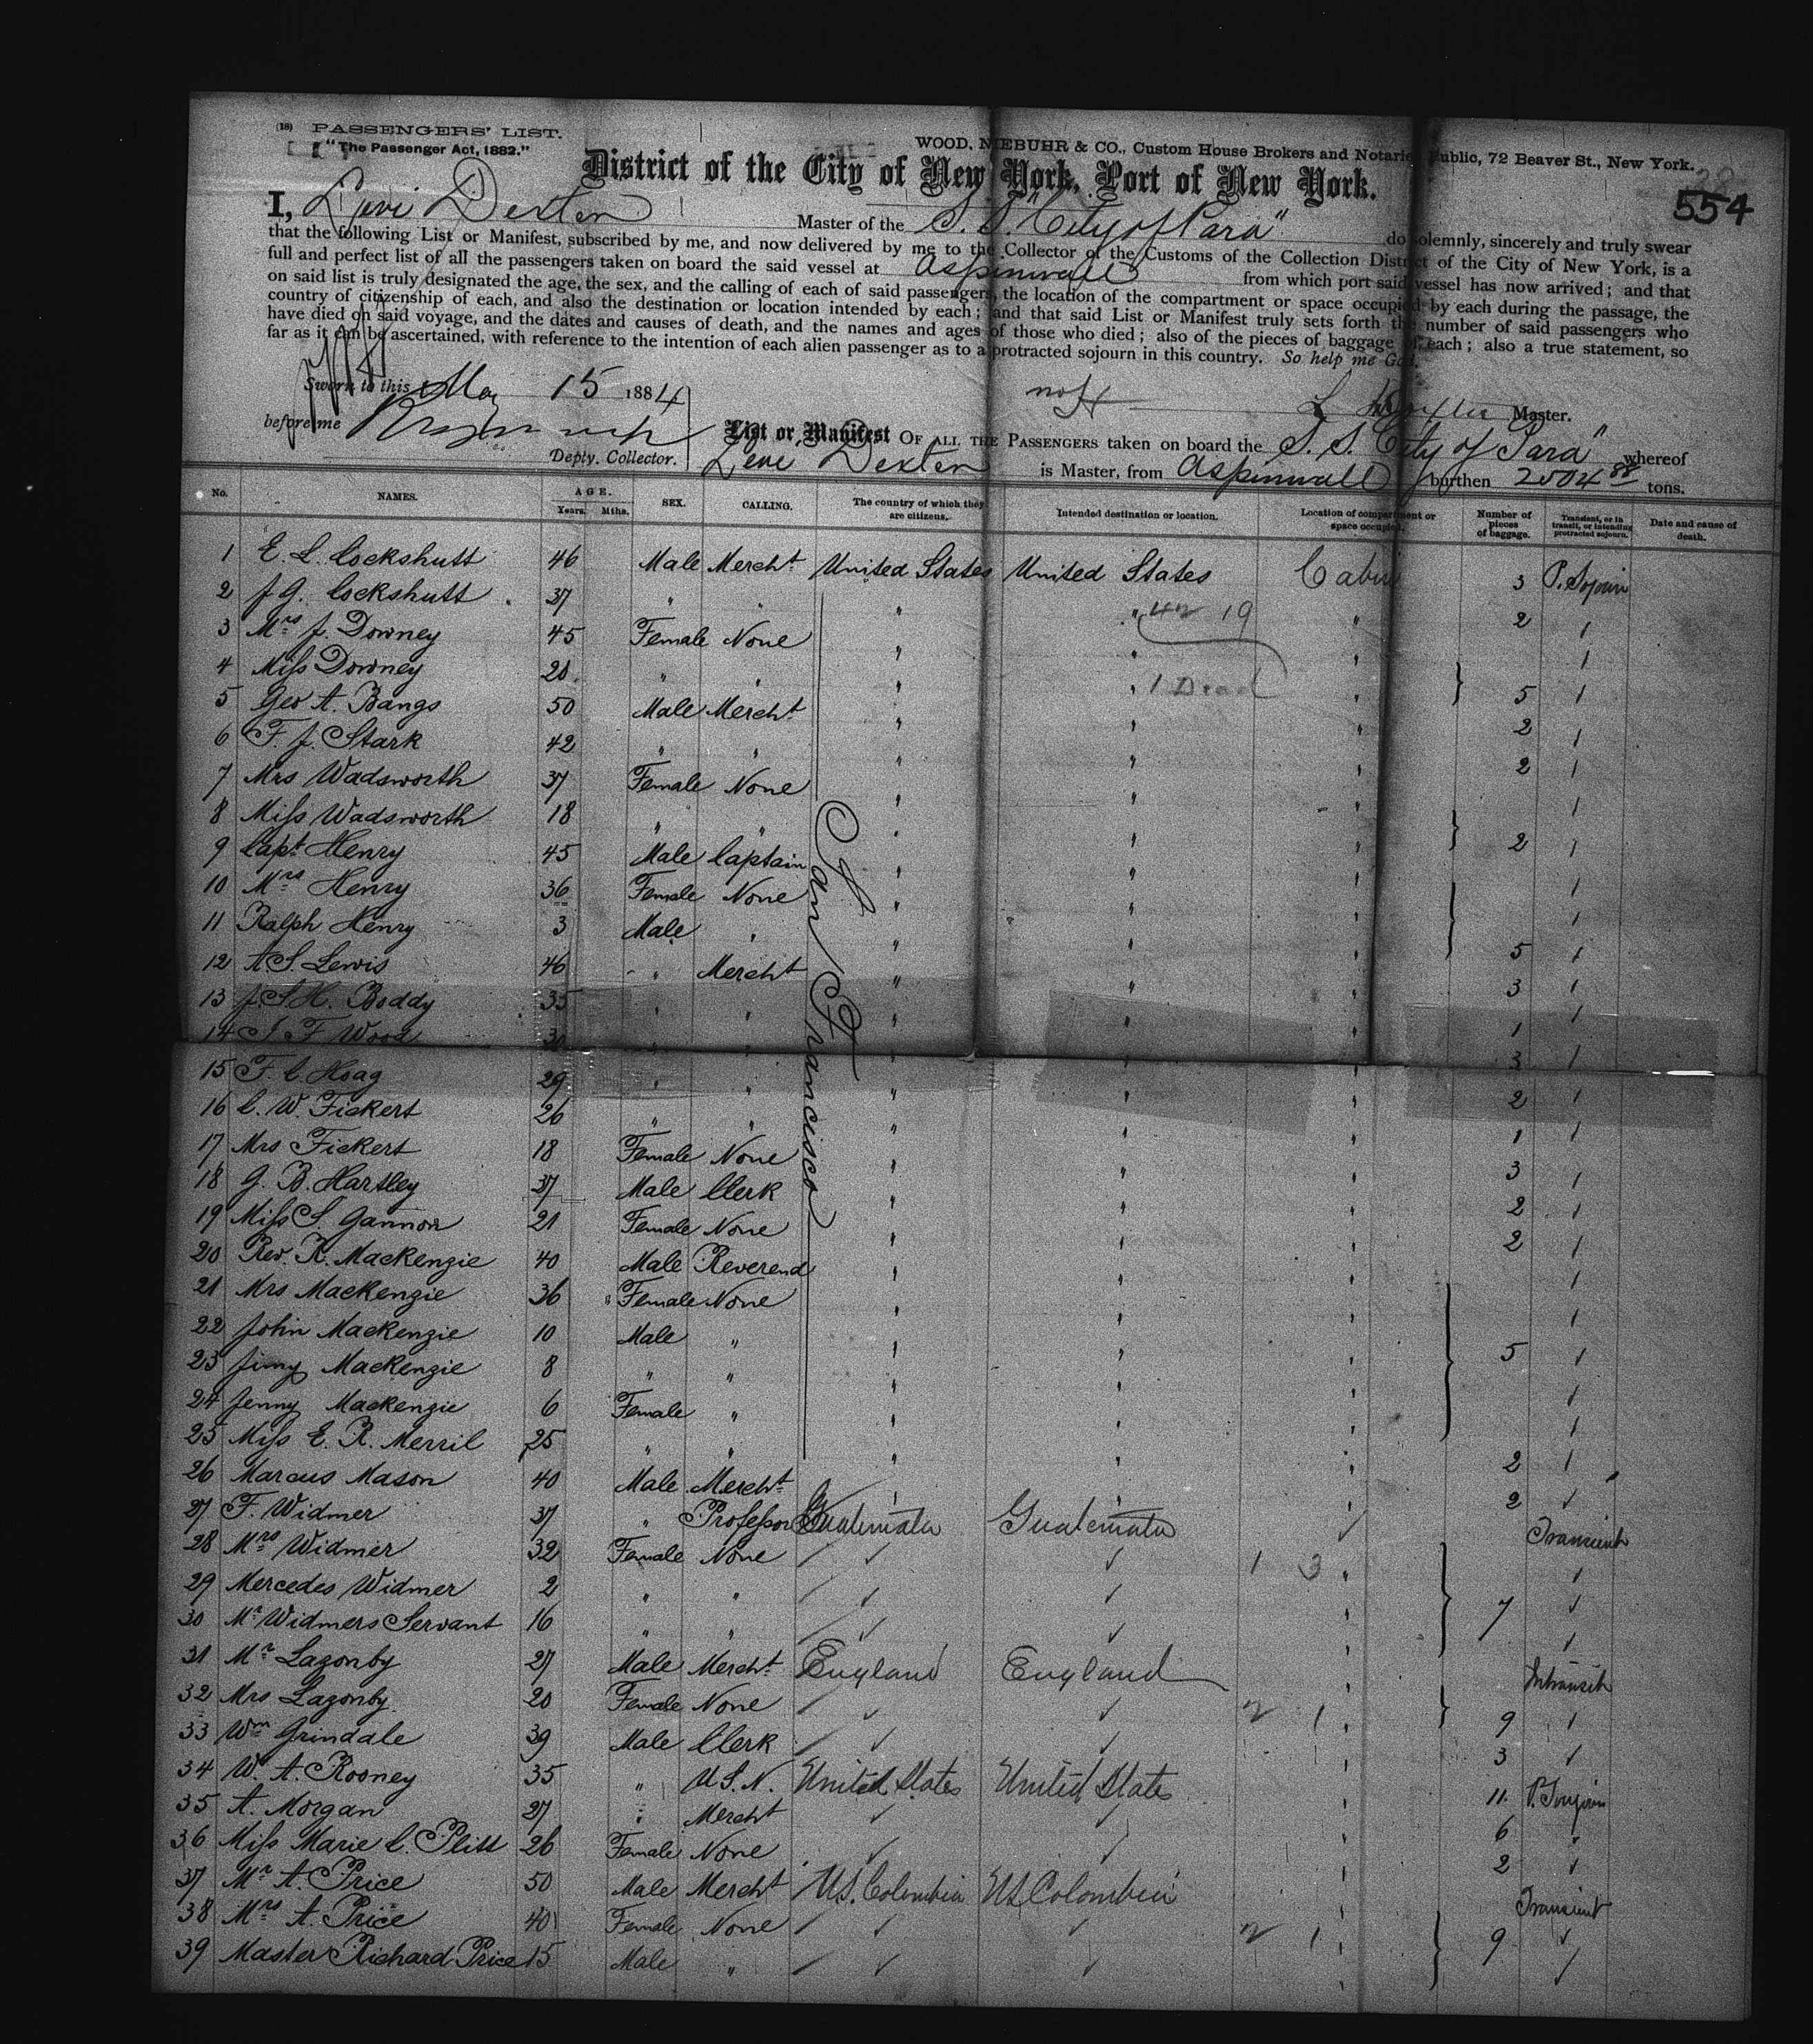 (18) PASSENGERS' LIST.
"The Passenger Act, 1882."
WOOD, NIEBUHR & CO., Custom House Brokers and Notaries Public, 72 Beaver St., New York.
District of the City of New York, Port of New York.
554
I, Levi Dexter Master of the S.S. "City of Para" do solemnly, sincerely and truly swear
that the following List or Manifest, subscribed by me, and now delivered by me to the Collector of the Customs of the Collection District of the City of New York, is a
full and perfect list of all the passengers taken on board the said vessel at Aspinwall from which port said vessel has now arrived; and that
on said list is truly designated the age, the sex, and the calling of each of said passengers, the location of the compartment or space occupied by each during the passage, the
country of citizenship of each, and also the destination or location intended by each; and that said List or Manifest truly sets forth the number of said passengers who
have died on said voyage, and the dates and causes of death, and the names and ages of those who died; also of the pieces of baggage of each; also a true statement, so
far as it can be ascertained, with reference to the intention of each alien passenger as to a protracted sojourn in this country. So help me God.
Sworn to this May 15 1884
L Dexter Master.
before me
Deply. Collector.
List or Manifest OF ALL THE PASSENGERS taken on board the S.S. City of Para" whereof
Levi Dexter is Master, from Aspinwall burthen 2504 88 tons.
No. NAMES. AGE. Years. Mths. SEX. CALLING. The country of which they are citizens. Intended destination or location. Location of compartment or space occupied. Number of pieces of baggage. Transient, or in transit, or intending protracted sojourn. Date and cause of death.
1 E. L. Cockshutt 46 Male Mercht United States United States Cabin 3 P. Sojourn
2 J. G. Cockshutt 37 " " " " 19 " 2
3 Mrs J. Downey 45 Female None " " "
4 Miss Downey 20 " " " " 1 Dead " 5
5 Geo A. Bangs 50 Male Mercht " " " 2
6 F. J. Stark 42 " " " " " 2
7 Mrs Wadsworth 37 Female None " " "
8 Miss Wadsworth 18 " " " " " 2
9 Capt Henry 45 Male Captain " " "
10 Mrs Henry 36 Female None " " "
11 Ralph Henry 3 Male " " " " 5
12 A. S. Lewis 46 " Mercht " " " 3
13 J. S. H. Boddy 35 " " " " " 1
14 J. F Wood 30 " " " " " 3
15 F. C. Hoag 29 " " " " " 2
16 C. W. Fickert 26 " " " " " 1
17 Mrs Fickert 18 Female None " " " 3
18 G. B. Hartley 37 Male Clerk " " " 2
19 Miss S. Gannon 21 Female None " " " 2
20 Rev. R. Mackenzie 40 Male Reverend " " "
21 Mrs Mackenzie 36 Female None " " "
22 John Mackenzie 10 Male " " " " 5
23 Jimy Mackenzie 8 " " " " "
24 Jenny Mackenzie 6 Female " " " "
25 Miss E. R. Merril 25 " " " " " 2
26 Marcus Mason 40 Male Mercht " " " 2
San Francisco
27 F. Widmer 37 " Professor Guatemala Guatemala Transient
28 Mrs Widmer 32 Female None 1 3 "
29 Mercedes Widmer 2 " " " 7
30 Mr Widmers Servant 16 " " "
31 Mr Lazonby 27 Male Mercht England England " Intransit
32 Mrs Lazonby 20 Female None 2 1 " 9
33 Wm Grindale 39 Male Clerk " 3
34 W. A. Rooney 35 " U.S.N. United States United States " 11 P. Sojourn
35 A. Morgan 27 " Mercht " 6 "
36 Miss Marie C. Plitt 26 Female None " 2
37 Mr A. Price 50 Male Mercht US. Colombia US Colombia " Transient
38 Mrs A. Price 40 Female None 2 1 " 9
39 Master Richard Price 15 Male " "